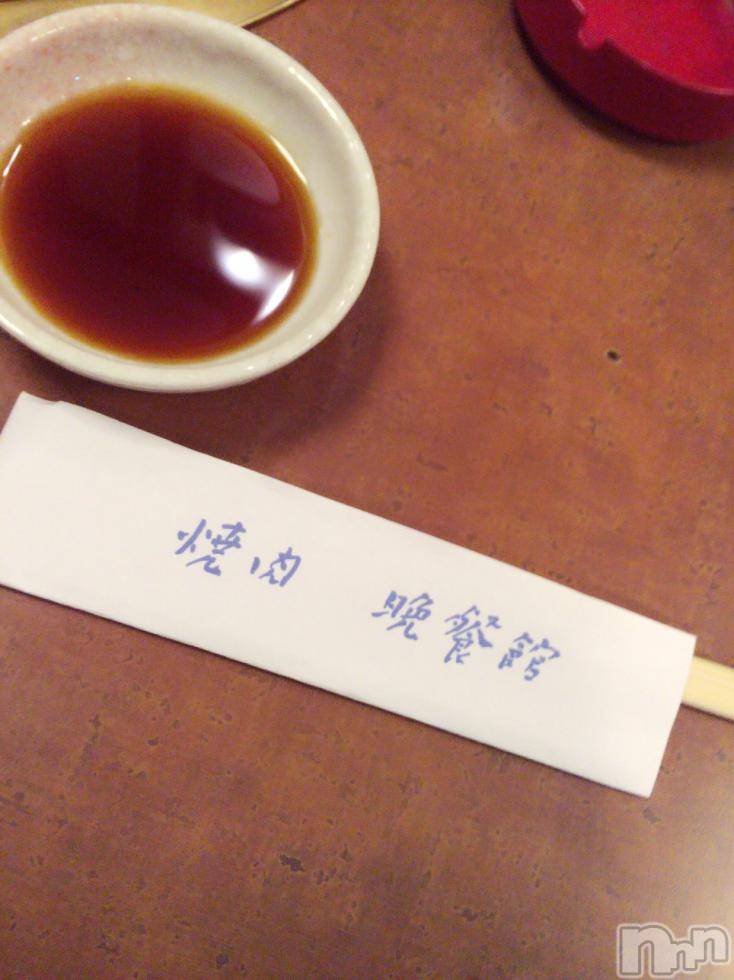 焼肉 晩餐館
nnn